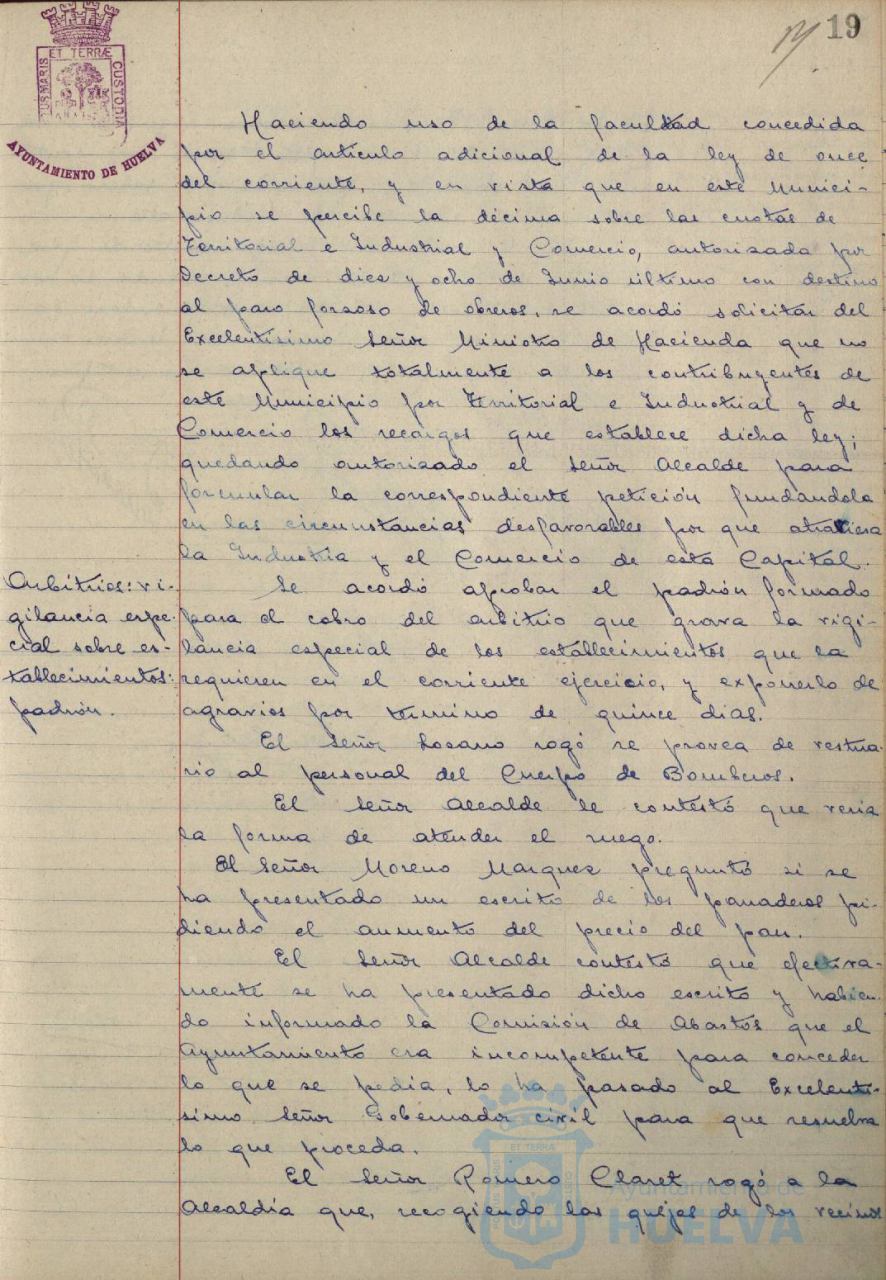 19
PORTUS MARIS ET TERRÆ CUSTODIA
AYUNTAMIENTO DE HUELVA
Haciendo uso de la facultad concedida
por el artículo adicional de la ley de once
del corriente, y en vista que en este Munici-
pio se percibe la décima sobre las cuotas de
Territorial e Industrial y Comercio, autorizada por
Decreto de diez y ocho de Junio último con destino
al paro forzoso de obreros, se acordó solicitar del
Excelentísimo Señor Ministro de Hacienda que no
se aplique totalmente a los contribuyentes de
este Municipio por Territorial e Industrial y de
Comercio los recargos que establece dicha ley;
quedando autorizado el Señor Alcalde para
formular la correspondiente petición fundandola
en las circunstancias desfavorables por que atraviesa
la Industria y el Comercio de esta Capital.
Arbitrios: vi-
gilancia espe-
cial sobre es-
tablecimientos:
padrón.
Se acordó aprobar el padrón formado
para el cobro del arbitrio que grava la vigi-
lancia especial de los establecimientos que la
requieren en el corriente ejercicio, y exponerlo de
agravios por termino de quince dias.
El Señor Lozano rogó se provea de vestua-
rio al personal del Cuerpo de Bomberos.
El Señor Alcalde le contestó que veria
la forma de atender el ruego.
El Señor Moreno Marquez preguntó si se
ha presentado un escrito de los panaderos pi-
diendo el aumento del precio del pan.
El Señor Alcalde contestó que efectiva-
mente se ha presentado dicho escrito y habien-
do informado la Comisión de Abastos que el
Ayuntamiento era incompetente para conceder
lo que se pedia, lo ha pasado al Excelentí-
simo Señor Gobernador civil para que resuelva
lo que proceda.
El Señor Romero Claret rogó a la
Alcaldía que, recogiendo las quejas de los vecinos
Ayuntamiento de
HUELVA